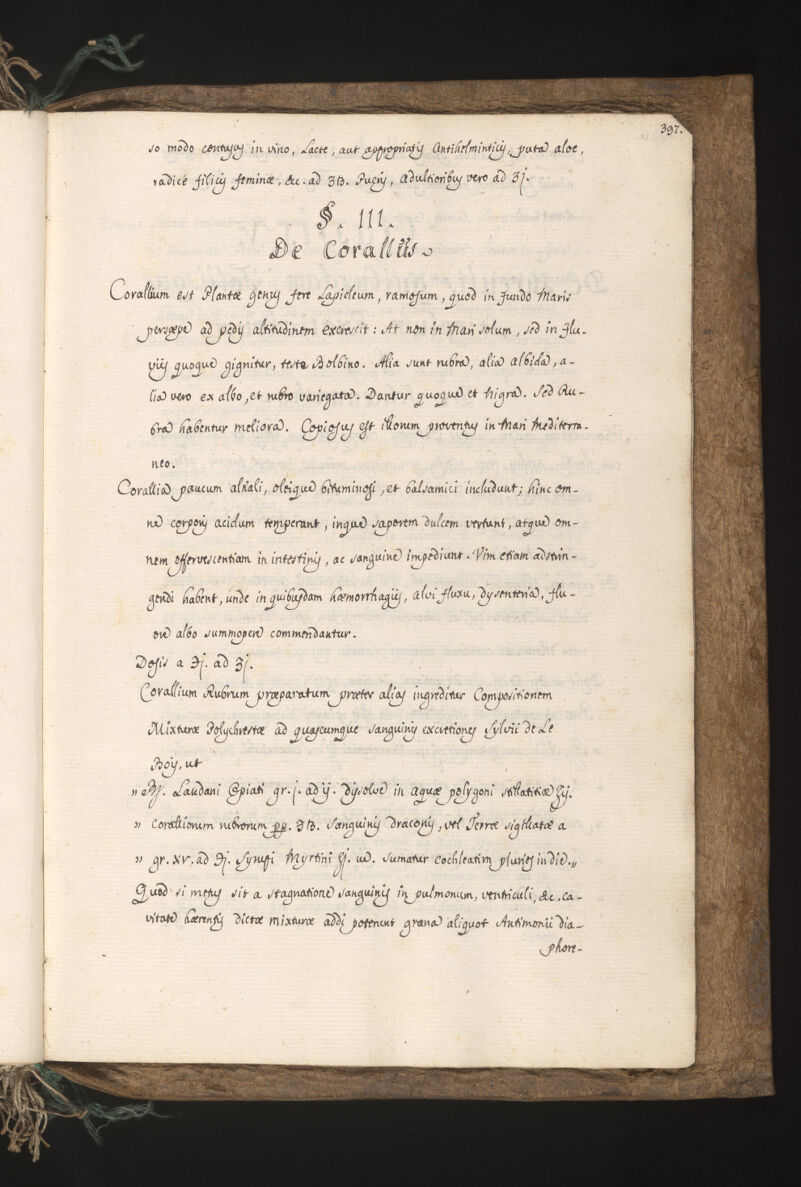 397.
so modo contusus in vino, Lacte, aut appropriatis Antihelminticis, puta aloe,
radice filicis feminæ, &c. ad ʒß. Pueris, Adultioribus vero ad ʒj.
§. III.
De Coralliis
Corallium est Plantæ genus fere Lapideum, ramosum, quod in fundo Maris
persæpe ad pedis altitudinem excrescit: At non in Mari solum, sed in flu-
viis quoque gignitur, teste Bolbino. Alia sunt rubra, alia albida, a-
lia vero ex albo, et rubro variegata. Dantur quoque et Nigra. Sed Ru-
bra habentur meliora. Copiosus est illorum proventus in Mari Mediterra-
neo.
Corallia paucum alkali, oleique bituminosi, et balsamici includunt; hinc om-
ne corporis acidum temperant, inque saporem dulcem vertunt, atque om-
nem effervescentiam in intestinis, ac sanguine impediunt. Vim etiam adstrin-
gendi habent, unde in quibusdam hæmorrhagiis, alvi fluxu, dysenteria, flu-
ore albo summopere commendantur.
Dosis a ℈j. ad ʒj.
Corallium Rubrum præparatum præter alias ingreditur Compositionem
Mixturæ Polychrestæ ad quascumque sanguinis excretiones Sylvii De Le
Boÿ, ut
„ ℞. Laudani Opiati gr. j. ad ij. Dysolve in aquæ polygoni stillatitiæ ℥ij.
„ Corallionum rubrorum pp. ʒß. Sanguinis Draconis, vel Terræ sigillatæ a
„ gr. XV. ad ℈j. Syrupi Myrtini ℥j. M. Sumatur cochleatim pluries in die.„
Quod si metus sit a stagnatione sanguinis in pulmonum, ventriculi, &c. ca-
vitate hærentis dictæ mixturæ addi poterunt grana aliquot Antimonii dia-
phore-